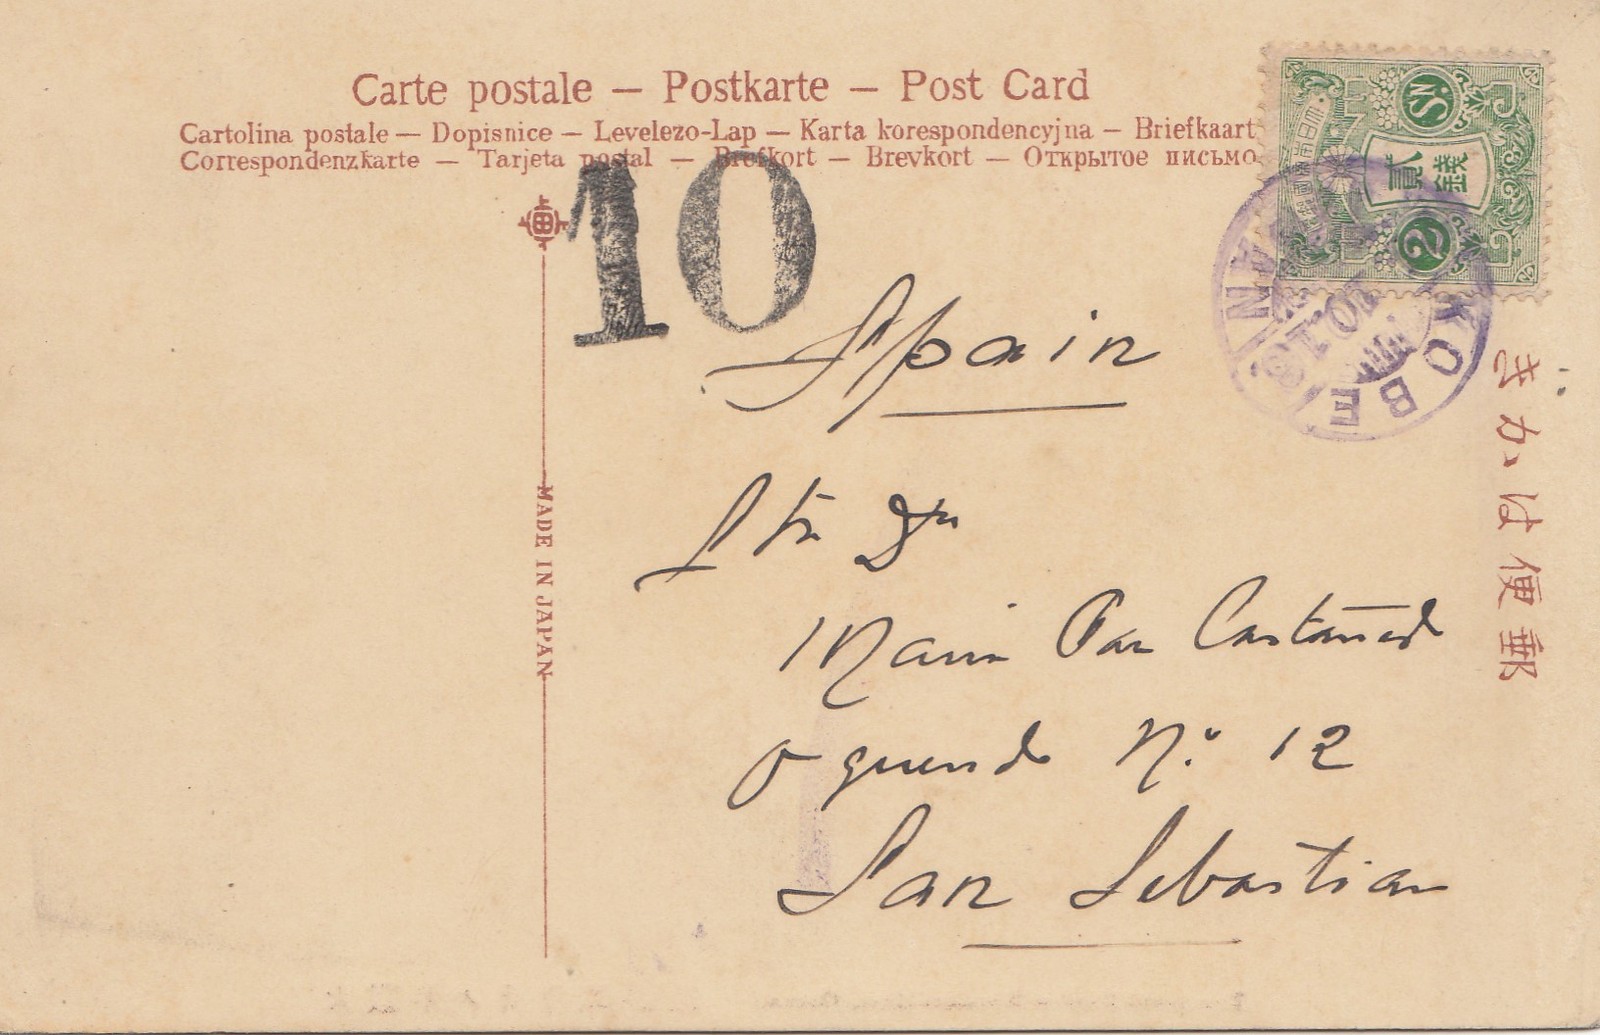 Carte postale — Postkarte — Post Card
Cartolina postale — Dopisnice — Levelezo-Lap — Karta korespondencyjna — Briefkaart
Correspondenzkarte — Tarjeta postal — Brefkort — Brevkort — Открытое письмо
10
SN
2
貳錢
大日本帝國郵便
KOBE
10.1
JAPAN
きかは便郵
MADE IN JAPAN
Spain
Sta Da
Maria Paz Castañeda
Oquendo N.º 12
San Sebastian